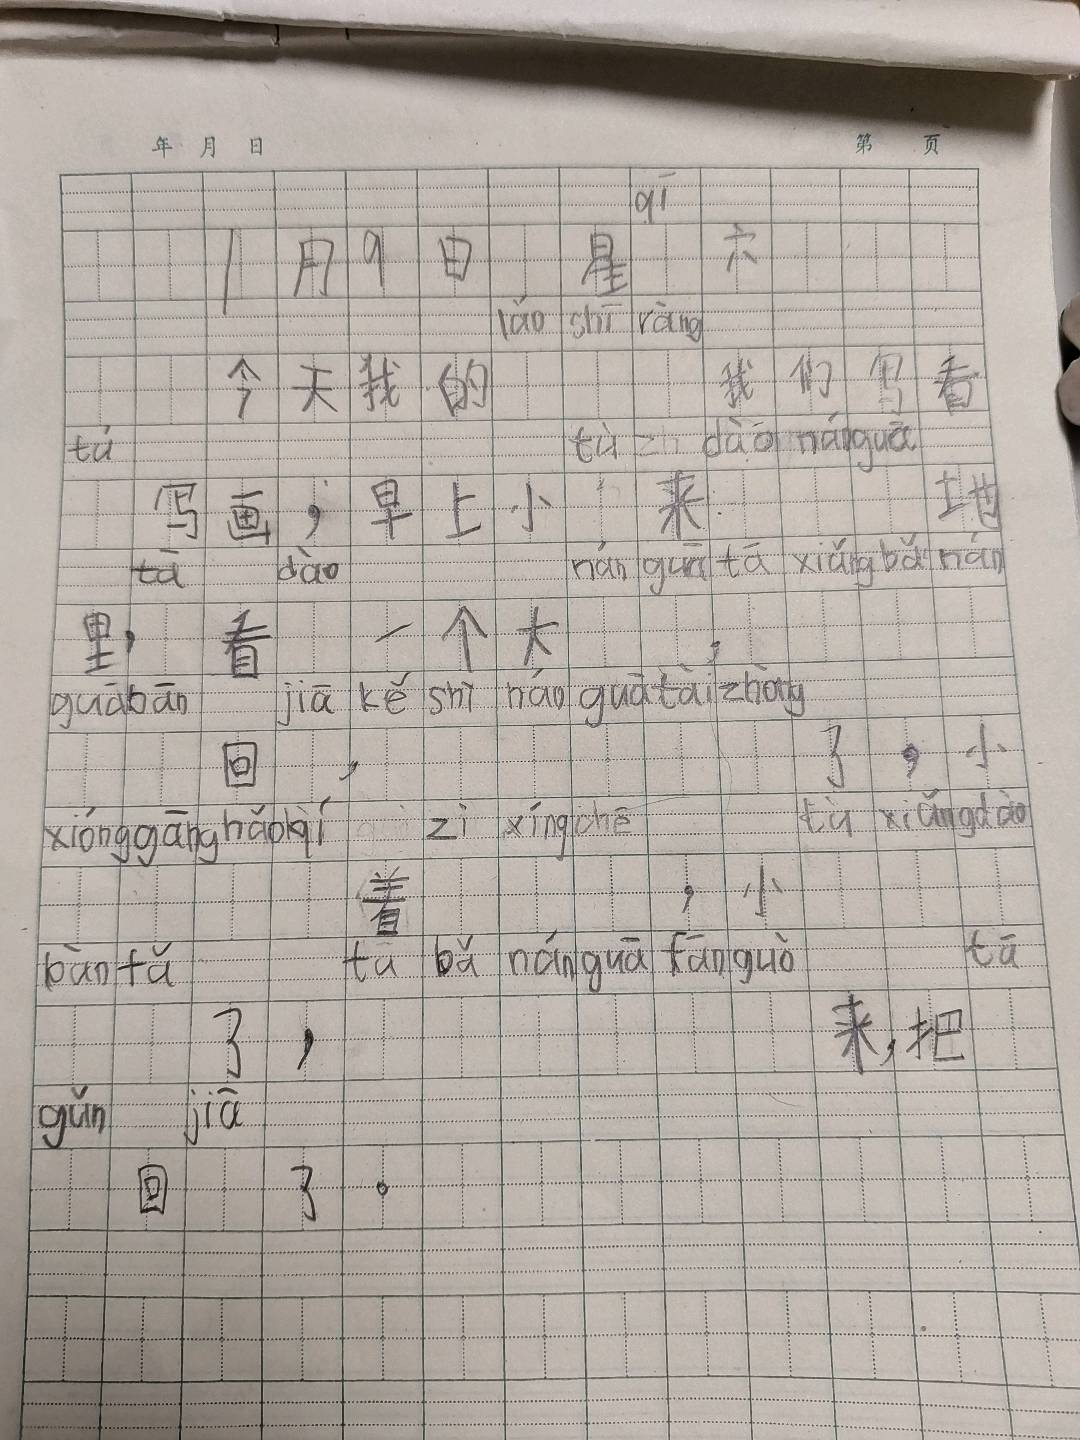 年 月 日 第 页
qī
1月9日 星 六
lǎo shī ràng
今天我的 我们写看
tú tù zi dào nánguā
写画，早上小 来 地
tā dào nán guā tā xiǎng bǎ nán
里，看 一个大 ，
guā bān jiā kě shì nán guā tài zhòng
回 ， 了，小
xióng gāng hǎo qí zì xíng chē tù xiǎng dào
着 ，小
bàn fǎ tā bǎ nán guā fān guò tā
了， 来，把
gǔn jiā
回 了。